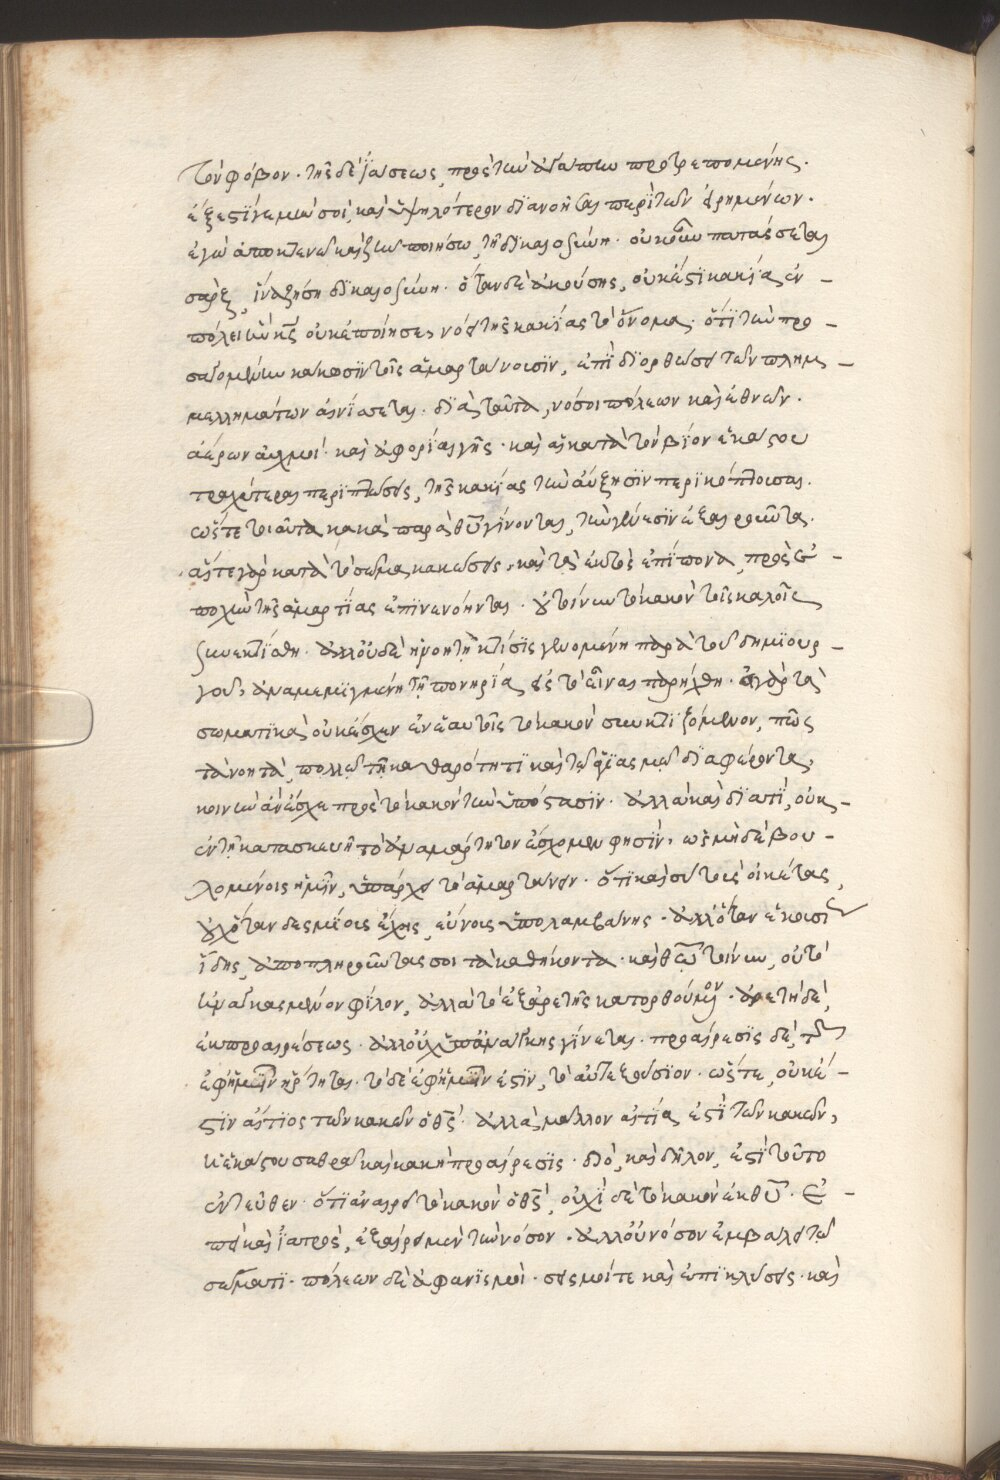 τὸν φόβον · τῆς δὲ ἰάσεως, πρὸς τὴν ἀγάπην προτρεπομένης ·
ἔξεστι γε μὴν σοὶ, καὶ ὑψηλότερον διανοῆσαι περὶ τῶν εἰρημένων ·
ἐγὼ ἀποκτενῶ καὶ ζῆν ποιήσω, τῇ δικαιοσύνῃ ·
σὰρξ, ἵνα ζήσῃ δικαιοσύνη · ὅταν δὲ ἀκούσῃς, οὐκ ἔστι κακία ἐν –
πόλει ἣν κς οὐκ ἐποίησε, νόει τῆς κακίας τὸ ὄνομα · ὅτι τὴν προ –
σαγομένην κάκωσιν τοῖς ἁμαρτάνουσιν, ἐπὶ διορθώσει τῶν πλημ –
μελημάτων αἰνίσσεται · διὰ ταῦτα, νόσοι πόλεων καὶ ἐθνῶν ·
ἀέρων αὐχμοὶ · καὶ ἀφορίαι γῆς · καὶ αἱ κατὰ τὸν βίον ἑκάστου
τραχύτεραι περιπτώσεις, τῆς κακίας τὴν αὔξησιν περικόπτουσαι ·
ὥστε τοιαῦτα κακὰ παρὰ θυ γίνονται, τὴν γένεσιν ἐξαιροῦντα ·
αἵ τε γὰρ κατὰ τὸ σῶμα κακώσεις, καὶ τὰ ἐκτὸς ἐπίπονα, πρὸς ἐ –
ποχὴν τῆς ἁμαρτίας ἐπινενόηνται · οὐ τοίνυν τὸ κακὸν τοῖς καλοῖς
συνεκτίσθη · ἀλλ' οὐδὲ ἡ νοητὴ κτίσις γενομένη παρὰ τοῦ δημιουρ –
γοῦ, ἀναμεμιγμένη τῇ πονηρίᾳ εἰς τὸ εἶναι παρήχθη · εἰ γὰρ τὰ
σωματικὰ οὐκ ἔσχεν ἐν ἑαυτοῖς τὸ κακὸν συγκτιζόμενον, πῶς
τὰ νοητὰ, πολλῷ τῇ καθαρότητι καὶ τῷ ἁγιασμῷ διαφέροντα,
κοινὴν ἀνέσχε πρὸς τὸ κακὸν τὴν ὑπόστασιν · ἀλλὰ καὶ διατί, οὐκ –
ἐν τῇ κατασκευῇ τὸ ἀναμάρτητον ἔσχομεν φησὶν, ὡς μὴ δὲ βου –
λομένοις ἡμῖν, ὑπάρχει τὸ ἁμαρτάνειν · ὅτι καὶ σὺ τοὺς οἰκέτας,
οὐχ ὅταν δεσμίους ἔχῃς, εὔνους ὑπολαμβάνῃς · ἀλλ' ὅταν ἑκουσί
ἴδῃς, ἀποπληροῦντας σοι τὰ καθήκοντα · καὶ θῷ τοίνυν, οὐ τὸ
ἠναγκασμένον φίλον, ἀλλὰ τὸ ἐξ ἀρετῆς κατορθούμενον · ἀρετὴ δὲ,
ἐκ προαιρέσεως · ἀλλ' οὐχ ὑπ' ἀνάγκης γίνεται · προαίρεσις δὲ, τῶν
ἐφ' ἡμῖν ἤρτηται · τὸ δὲ ἐφ' ἡμῖν ἐστὶν, τὸ αὐτεξούσιον · ὥστε, οὐκ ἔ –
στιν αἴτιος τῶν κακῶν ὁ θς · ἀλλὰ μᾶλλον αἰτία ἐστὶ τῶν κακῶν,
ἡ ἑκάστου σαθρὰ καὶ κακὴ προαίρεσις · διὸ, καὶ δῆλον, ἐστὶ τοῦτο
ἐντεῦθεν · ὅτι ἀναιρεῖ τὸ κακὸν ὁ θς, οὐχὶ δὲ τὸ κακὸν ἐκ θυ · ἐ –
πεὶ καὶ ἰατρὸς, ἐξαίρει μὲν τὴν νόσον · ἀλλ' οὐ νόσον ἐμβάλει τῷ
σώματι · πόλεων δὲ ἀφανισμοὶ · σεισμοί τε καὶ ἐπικλύσεις · καὶ